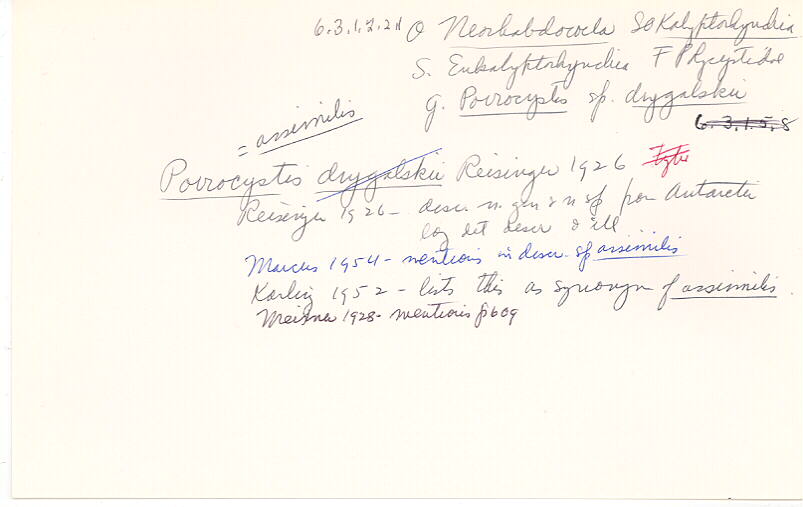 6.3.1.2.21 O Neorhabdocoela SO Kalyptorhynchia
S. Eukalyptorhynchia F Polycystidae
g. Porrocystis sp. drygalskii
6.3.1.5.8
= assimilis
Porrocystis drygalskii Reisinger 1926
Reisinger 1926 - descr. n. gen & n sp from Antarctic
loc det descr & ill
Marcus 1954 - mentions in descr. of assimilis
Karling 1952 - lists this as synonym of assimilis.
Meixner 1928 - mentions p609